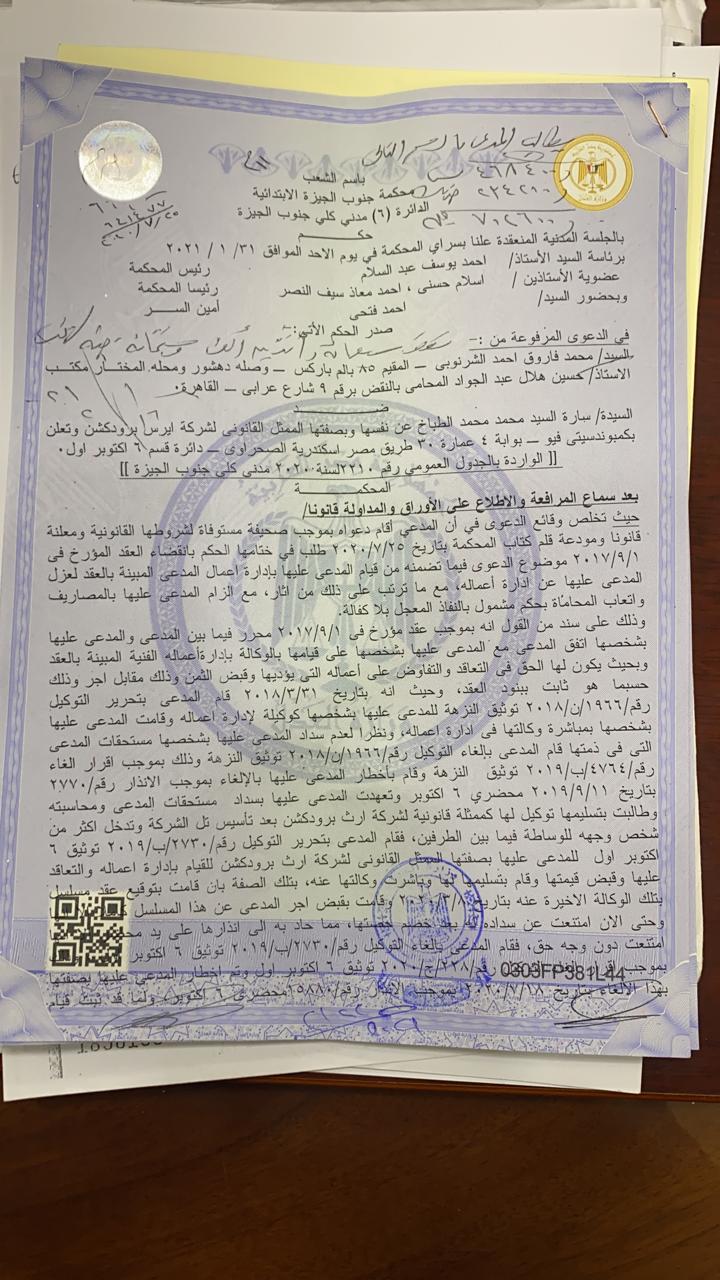 يطالب المدعى بالرسم التالى
٤٦٨٤٠٠
٢٣٤٢٠٠
٧٠٢٦٠٠
باسم الشعب
محكمة جنوب الجيزة الابتدائية
الدائرة (٦) مدني كلي جنوب الجيزة
حكم
بالجلسة المدنية المنعقدة علنا بسراي المحكمة في يوم الاحد الموافق ٣١ / ١ / ٢٠٢١
برئاسة السيد الأستاذ/ احمد يوسف عبد السلام رئيس المحكمة
عضوية الأستاذين / اسلام حسنى ، احمد معاذ سيف النصر رئيسا المحكمة
وبحضور السيد/ احمد فتحى أمين الســر
صدر الحكم الأتي:
في الدعوى المرفوعة من :-
السيد/ محمد فاروق احمد الشرنوبى – المقيم ٨٥ بالم باركس – وصله دهشور ومحله المختار مكتب
الاستاذ/ حسين هلال عبد الجواد المحامى بالنقض برقم ٩ شارع عرابى – القاهرة.
ضــــد
السيدة/ سارة السيد محمد محمد الطباخ عن نفسها وبصفتها الممثل القانونى لشركة ايرس برودكشن وتعلن
بكمبوندسيتى فيو – بوابة ٤ عمارة ٣٠ طريق مصر اسكندرية الصحراوى – دائرة قسم ٦ اكتوبر اول.
[[ الواردة بالجدول العمومي رقم ٢٢١٠ لسنة ٢٠٢٠ مدنى كلي جنوب الجيزة ]]
المحكمــــة
بعد سماع المرافعة والاطلاع على الأوراق والمداولة قانونا/
حيث تخلص وقائع الدعوى في أن المدعي أقام دعواه بموجب صحيفة مستوفاة لشروطها القانونية ومعلنة
قانونا ومودعة قلم كتاب المحكمة بتاريخ ٢٠٢٠/٧/٢٥ طلب في ختامها الحكم بانقضاء العقد المؤرخ فى
٢٠١٧/٩/١ موضوع الدعوى فيما تضمنه من قيام المدعى عليها بإدارة اعمال المدعى المبينة بالعقد لعزل
المدعى عليها عن ادارة أعماله، مع ما ترتب على ذلك من اثار، مع الزام المدعى عليها بالمصاريف
واتعاب المحاماة بحكم مشمول بالنفاذ المعجل بلا كفالة.
وذلك على سند من القول انه بموجب عقد مؤرخ فى ٢٠١٧/٩/١ محرر فيما بين المدعى والمدعى عليها
بشخصها اتفق المدعى مع المدعى عليها بشخصها على قيامها بالوكالة بإدارةأعماله الفنية المبينة بالعقد
وبحيث يكون لها الحق فى التعاقد والتفاوض على أعماله التى يؤديها وقبض الثمن وذلك مقابل اجر وذلك
حسبما هو ثابت ببنود العقد، وحيث انه بتاريخ ٢٠١٨/٣/٣١ قام المدعى بتحرير التوكيل
رقم/١٩٦٦/ن/٢٠١٨ توثيق النزهة للمدعى عليها بشخصها كوكيلة لإدارة اعماله وقامت المدعى عليها
بشخصها بمباشرة وكالتها فى ادارة اعماله، ونظرا لعدم سداد المدعى عليها بشخصها مستحقات المدعى
التى فى ذمتها قام المدعى بإلغاء التوكيل رقم/١٩٦٦/ن/٢٠١٨ توثيق النزهة وذلك بموجب اقرار الغاء
رقم/٤٧٦٤/ب/٢٠١٩ توثيق النزهة وقام بأخطار المدعى عليها بالإلغاء بموجب الانذار رقم/٢٧٧٠
بتاريخ ٢٠١٩/٩/١١ محضري ٦ اكتوبر وتعهدت المدعى عليها بسداد مستحقات المدعى ومحاسبته
وطالبت بتسليمها توكيل لها كممثلة قانونية لشركة ارث برودكشن بعد تأسيس تل الشركة وتدخل اكثر من
شخص وجهه للوساطة فيما بين الطرفين، فقام المدعى بتحرير التوكيل رقم/٢٧٣٠/ب/٢٠١٩ توثيق ٦
اكتوبر اول للمدعى عليها بصفتها الممثل القانونى لشركة ارث برودكشن للقيام بإدارة اعماله والتعاقد
عليها وقبض قيمتها وقام بتسليمه لها وباشرت وكالتها عنه، بتلك الصفة بان قامت بتوقيع عقد مسلسل
بتلك الوكالة الاخيرة عنه بتاريخ وقامت بقبض اجر المدعى عن هذا المسلسل
وحتى الان امتنعت عن سداده مما حاد به الى انذارها على يد
امتنعت دون وجه حق، فقام المدعى بالغاء التوكيل رقم/٢٧٣٠/ب/٢٠١٩ توثيق ٦ اكتوبر
بموجب رقم/٢٢٨/ج/٢٠٢٠ توثيق ٦ اكتوبر اول وتم اخطار المدعى عليها بصفتها
بهذا الالغاء بتاريخ ٢٠٢٠/٧/١٨ بموجب الانذار رقم/١٥٨٨٠ محضرى ٦ اكتوبر، ولما قد ثبت قيام
0303FP381L44